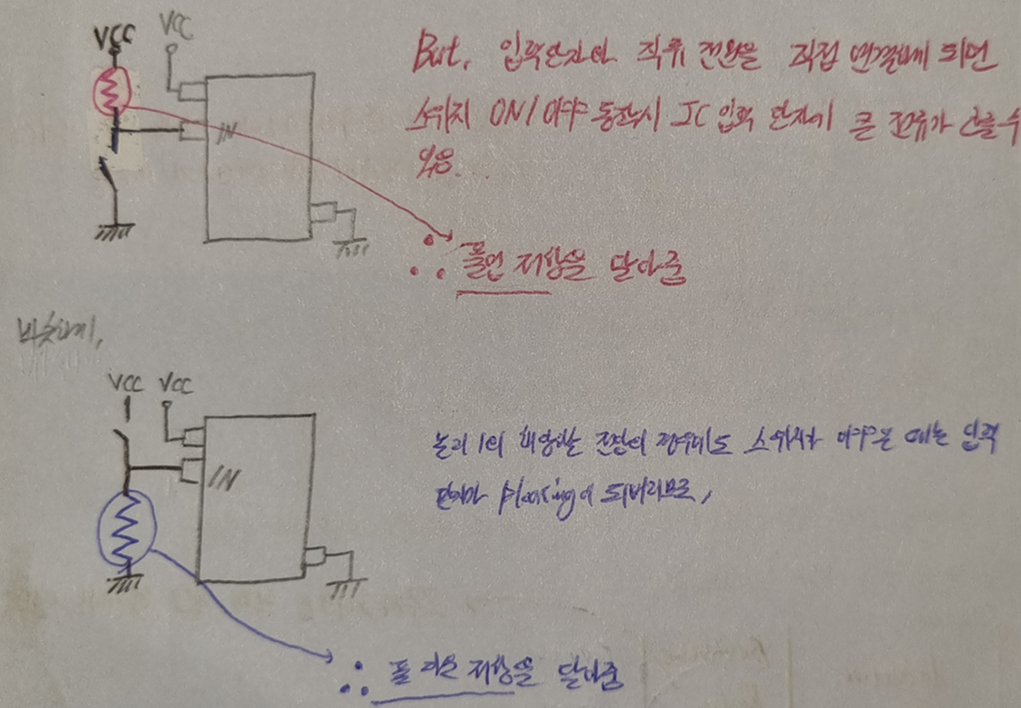 VCC VCC
But, 입력단자와 직류 전원을 직접 연결하게 되면
IN 스위치 ON/OFF 동작시 IC 입력 단자에 큰 전류가 흐를 수
있음.
∴ 풀업 저항을 달아줌
비슷하게,
VCC VCC
논리 1에 해당할 전압의 경우에도 스위치가 OFF일 때는 입력
IN
단자가 floating이 되버리므로,
∴ 풀 다운 저항을 달아줌